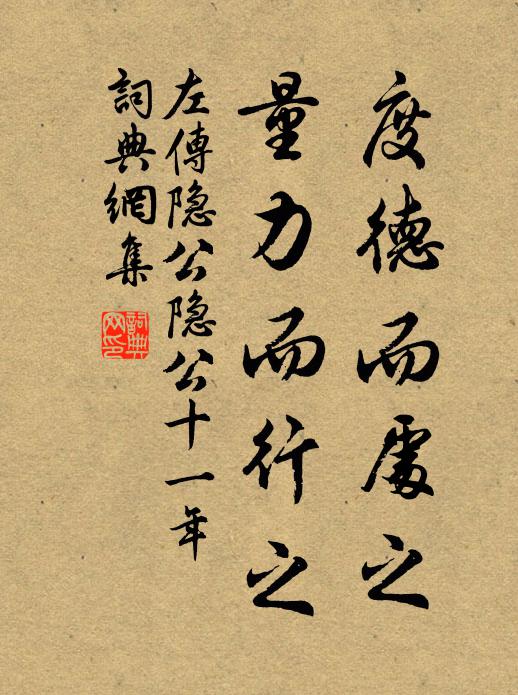 度德而處之
量力而行之
左傳隐公隐公十一年
詞典網集
詞典
网印